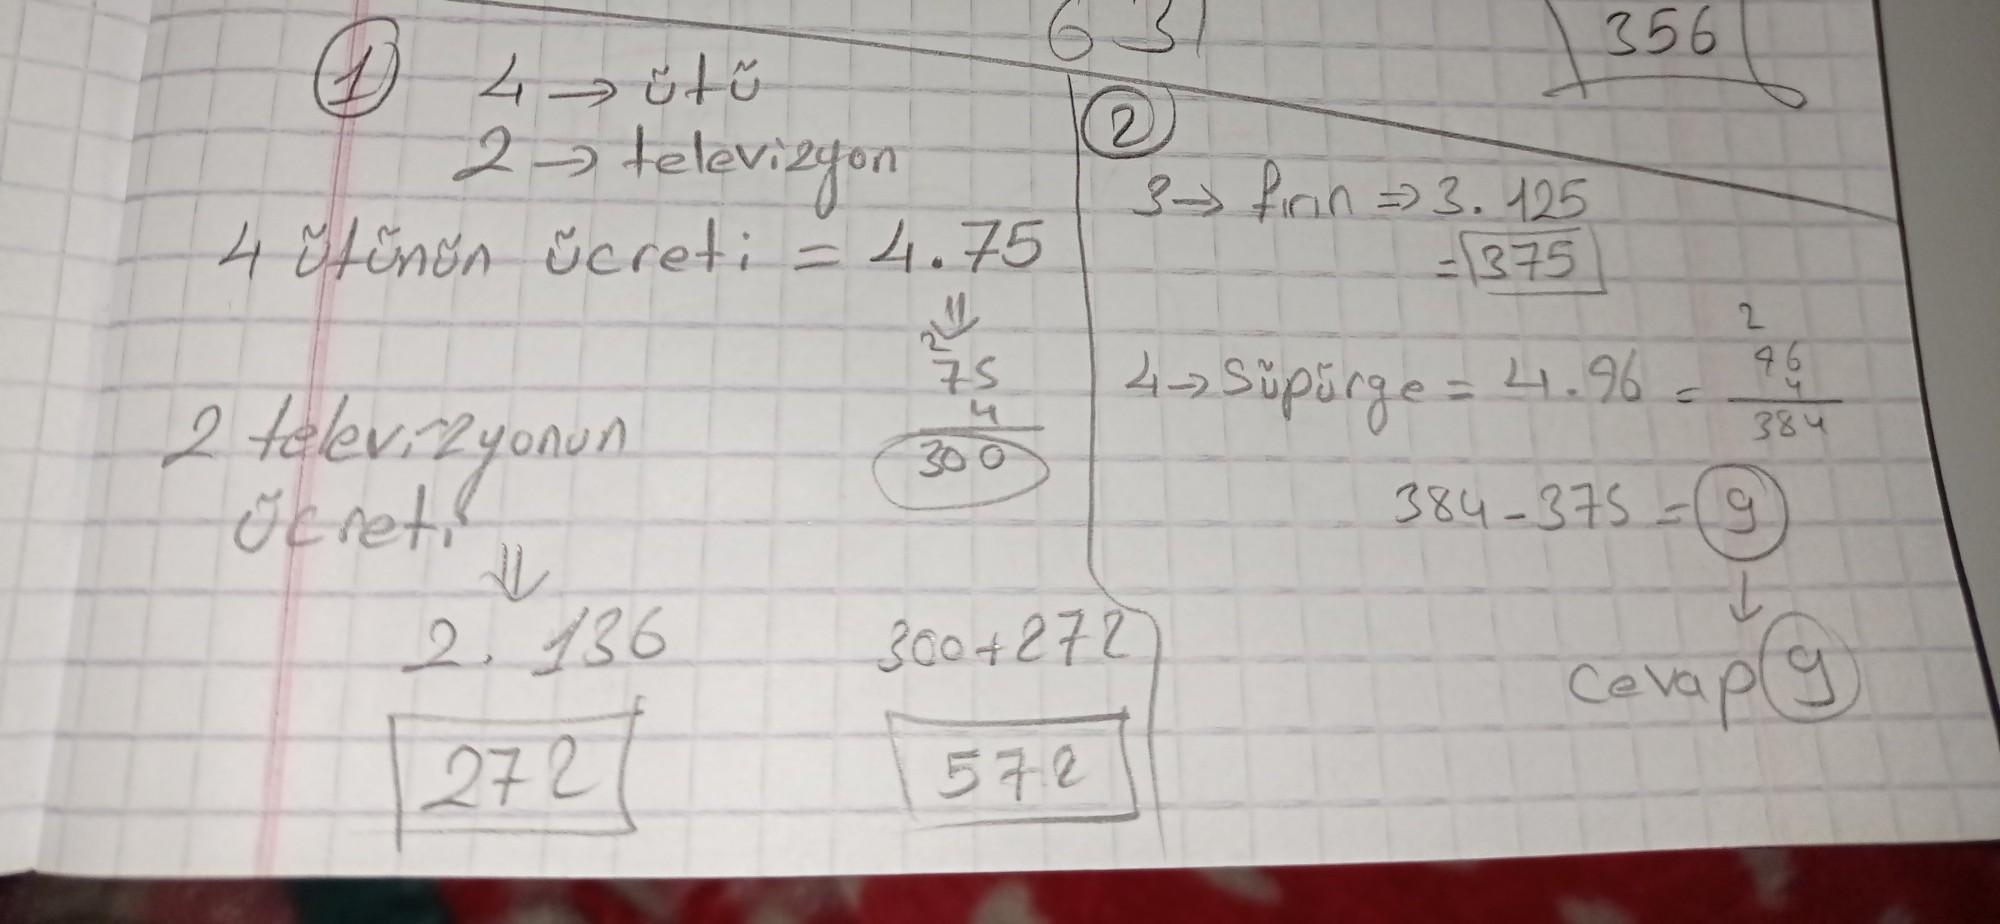 631
356
1
4 → ütü
2 → televizyon
4 ütünün ücreti = 4.75
⇓
2
75
4
300
2 televizyonun
ücreti
⇓
2. 136
272
300+272
572
2
3 → fırın ⇒ 3. 125
= 375
4 → Süpürge = 4.96 =
2
96
4
384
384 - 375 = 9
↓
cevap 9